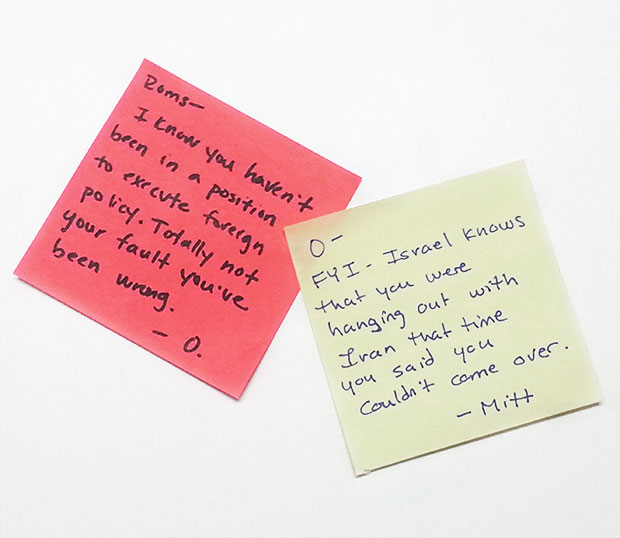 Roms-
I know you haven't
been in a position
to execute foreign
policy. Totally not
your fault you've
been wrong.
- O.
O -
FYI - Israel knows
that you were
hanging out with
Iran that time
you said you
couldn't come over.
- Mitt